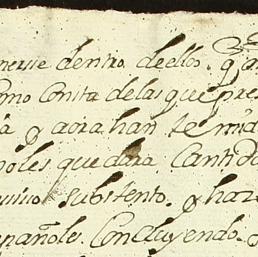 nerse dentro dellos. q
omo Consta delas que pres
a y aora han temid
oles que dara Cantid
subtento. y haz
españoles. Concluyendo